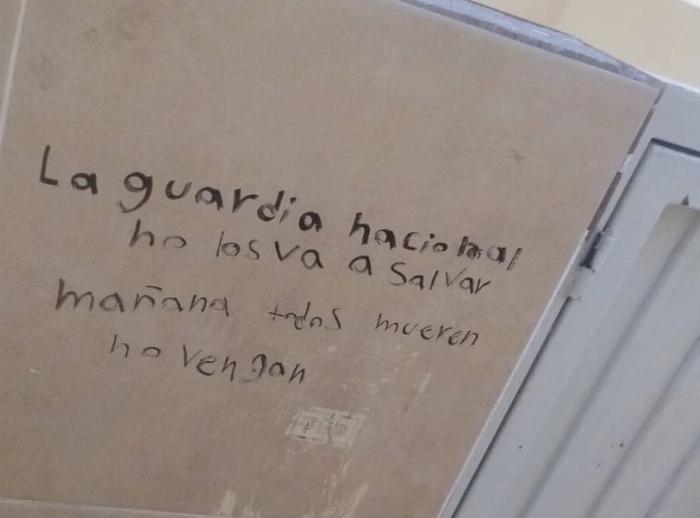 La guardia nacional
no los va a salvar
mañana todos mueren
no vengan